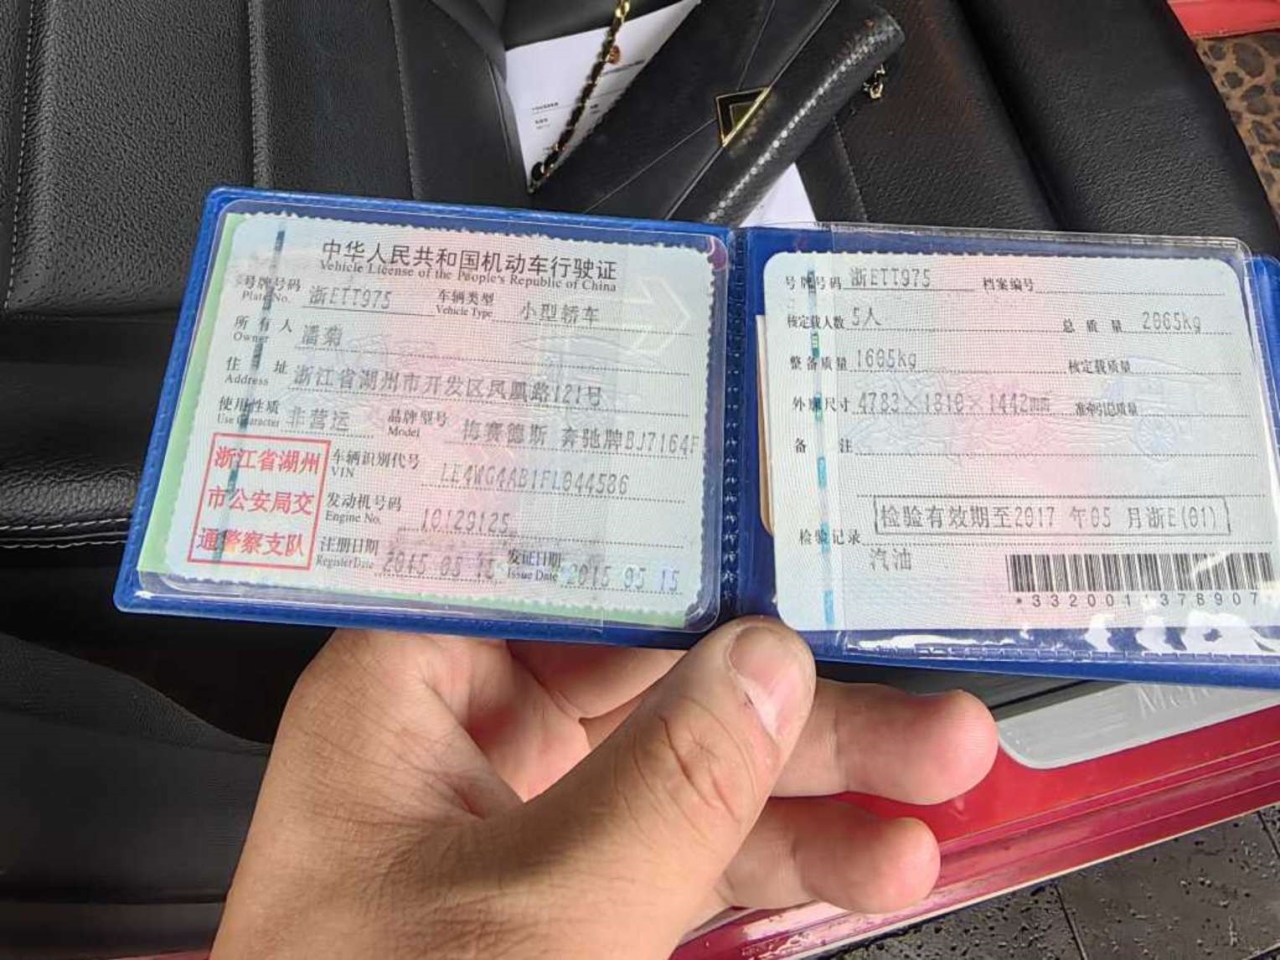 中华人民共和国机动车行驶证
Vehicle License of the People's Republic of China
号牌号码 浙ETT975 车辆类型 小型轿车
Plate No. Vehicle Type
所有人 潘菊
Owner
住址 浙江省湖州市开发区凤凰路121号
Address
使用性质 非营运 品牌型号 梅赛德斯 奔驰牌BJ7164F
Use Character Model
浙江省湖州
市公安局交
通警察支队
车辆识别代号 LE4WG4AB1FL044586
VIN
发动机号码 10129125
Engine No.
注册日期 发证日期 2015 05 15
Register Date Issue Date
号牌号码 浙ETT975 档案编号
核定载人数 5人 总质量 2065kg
整备质量 1605kg 核定载质量
外廓尺寸 4783×1810×1442 准牵引总质量
备注
检验有效期至2017 年05 月浙E(01)
检验记录
汽油
*3320011378907